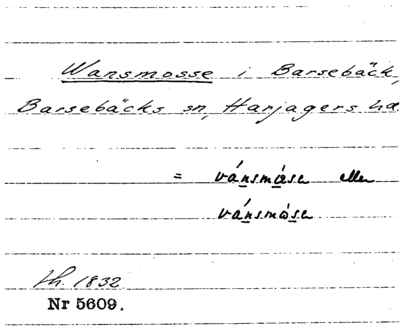 Wansmosse i Barsebäck,
Barsebäcks sn, Harjagers hd.
= vánsmåse eller
vánsmòse
1832
Nr 5609.